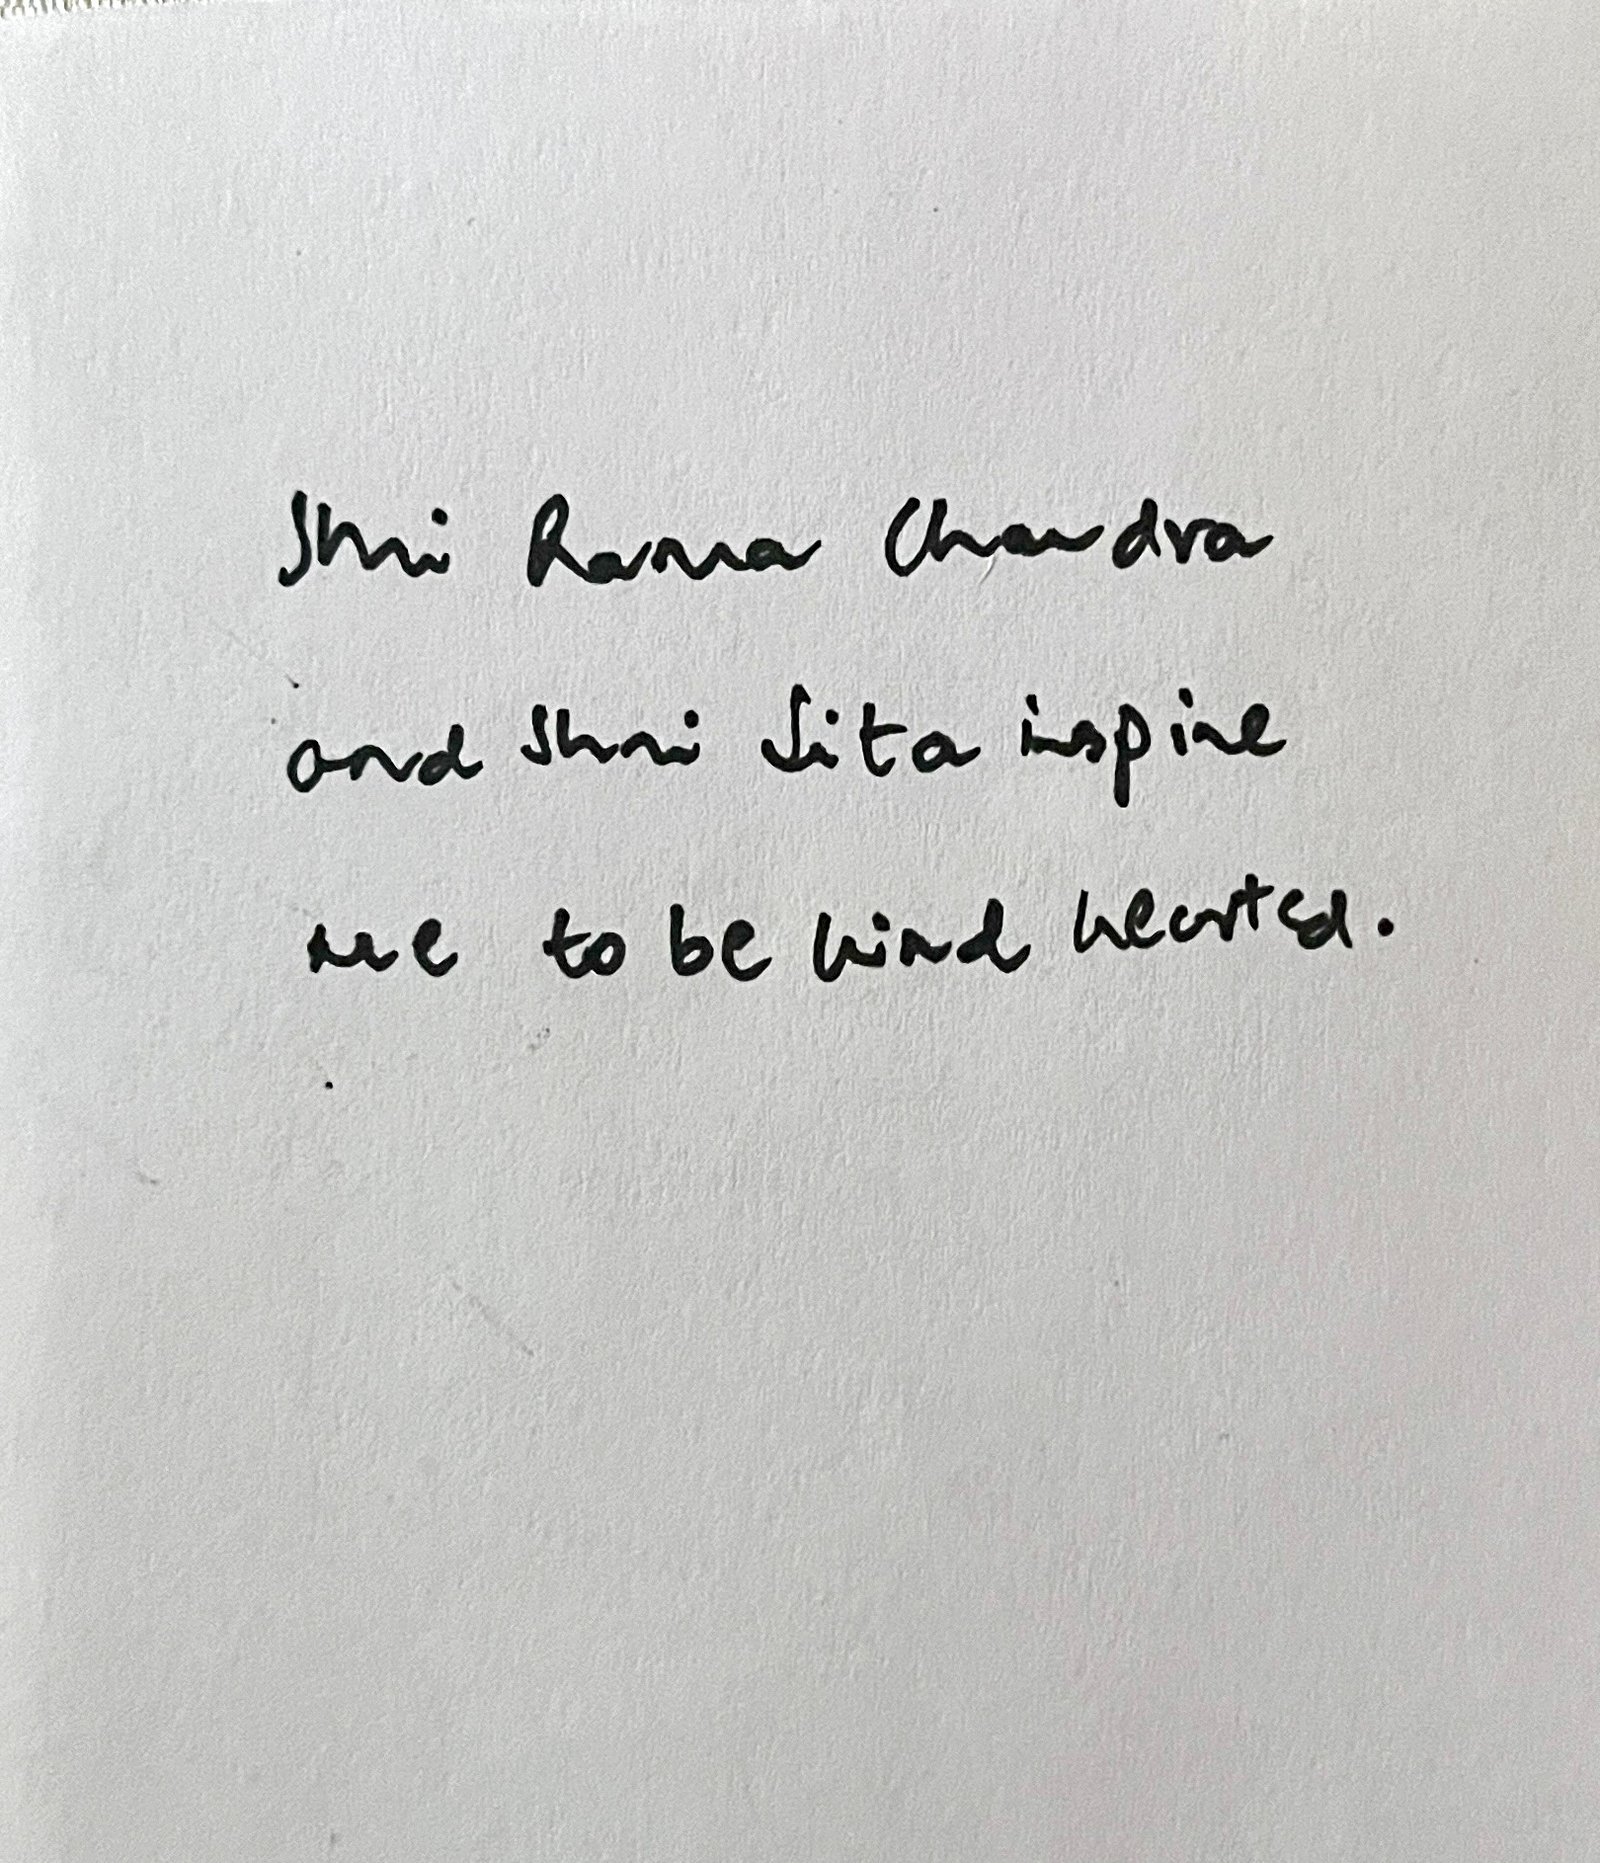 Shri Rama Chandra
and Shri Sita inspire
me to be kind hearted.